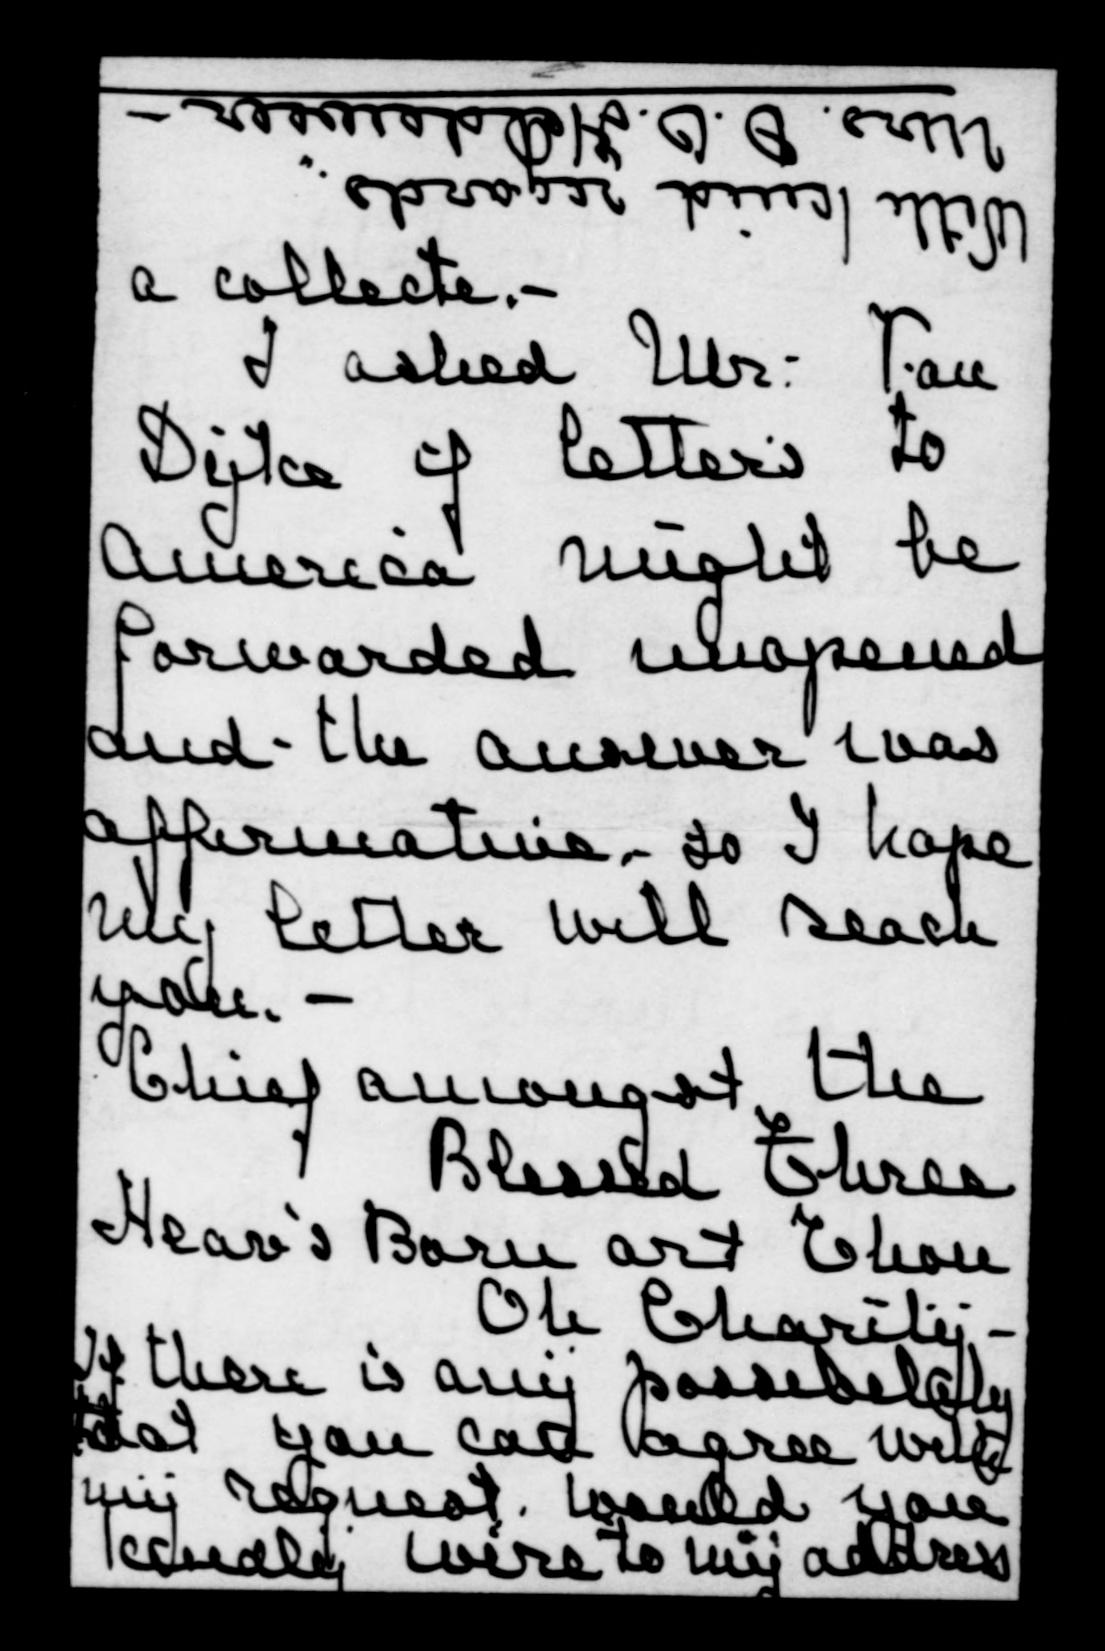 With kind regards.
Mrs.
a collecte.-
I asked Mr: Van
Dijke if letters to
America might be
forwarded unopened
and - the answer was
affirmative.- so I hope
my letter will reach
you. -
Chief amongst the
Blessed Three
Heav's Born art Thou
Oh Charity -
If there is any possebelety
that you can agree with
my request. would you
kandly wire to my address